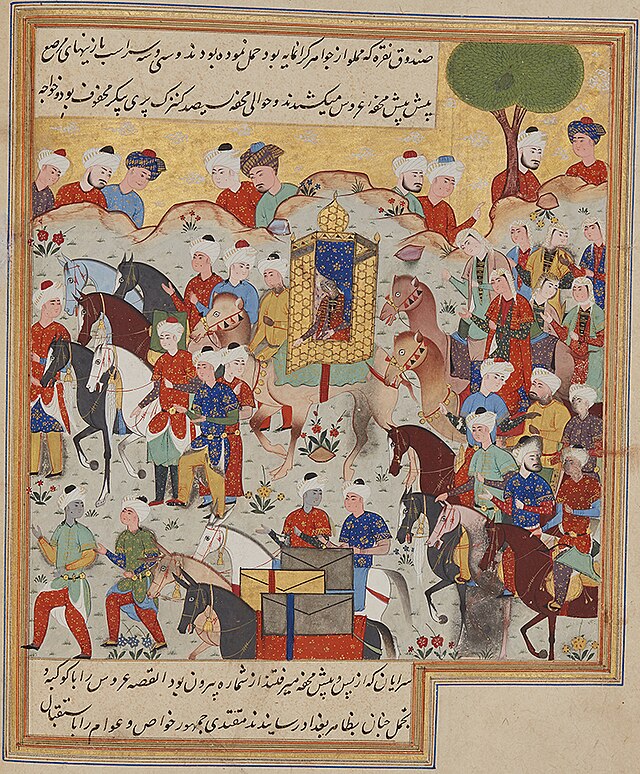 صندوق نقره که مملو از جواهر گرانمایه بود حمل نموده بودند و سی و سه سراسب با زینهای مرصع
پیش پیش محفهٔ عروس میکشیدند و حوالی محفه سیصد کنیزک پری پیکر محفوف بود و خواجه
سرایان که از پس و پیش محفه میرفتند از شماره بیرون بود القصه عروس را با کوکبه و
تجمل چنان بظاهر بغداد رسانیدند مقتدی جمهور خواص و عوام را باستقبال